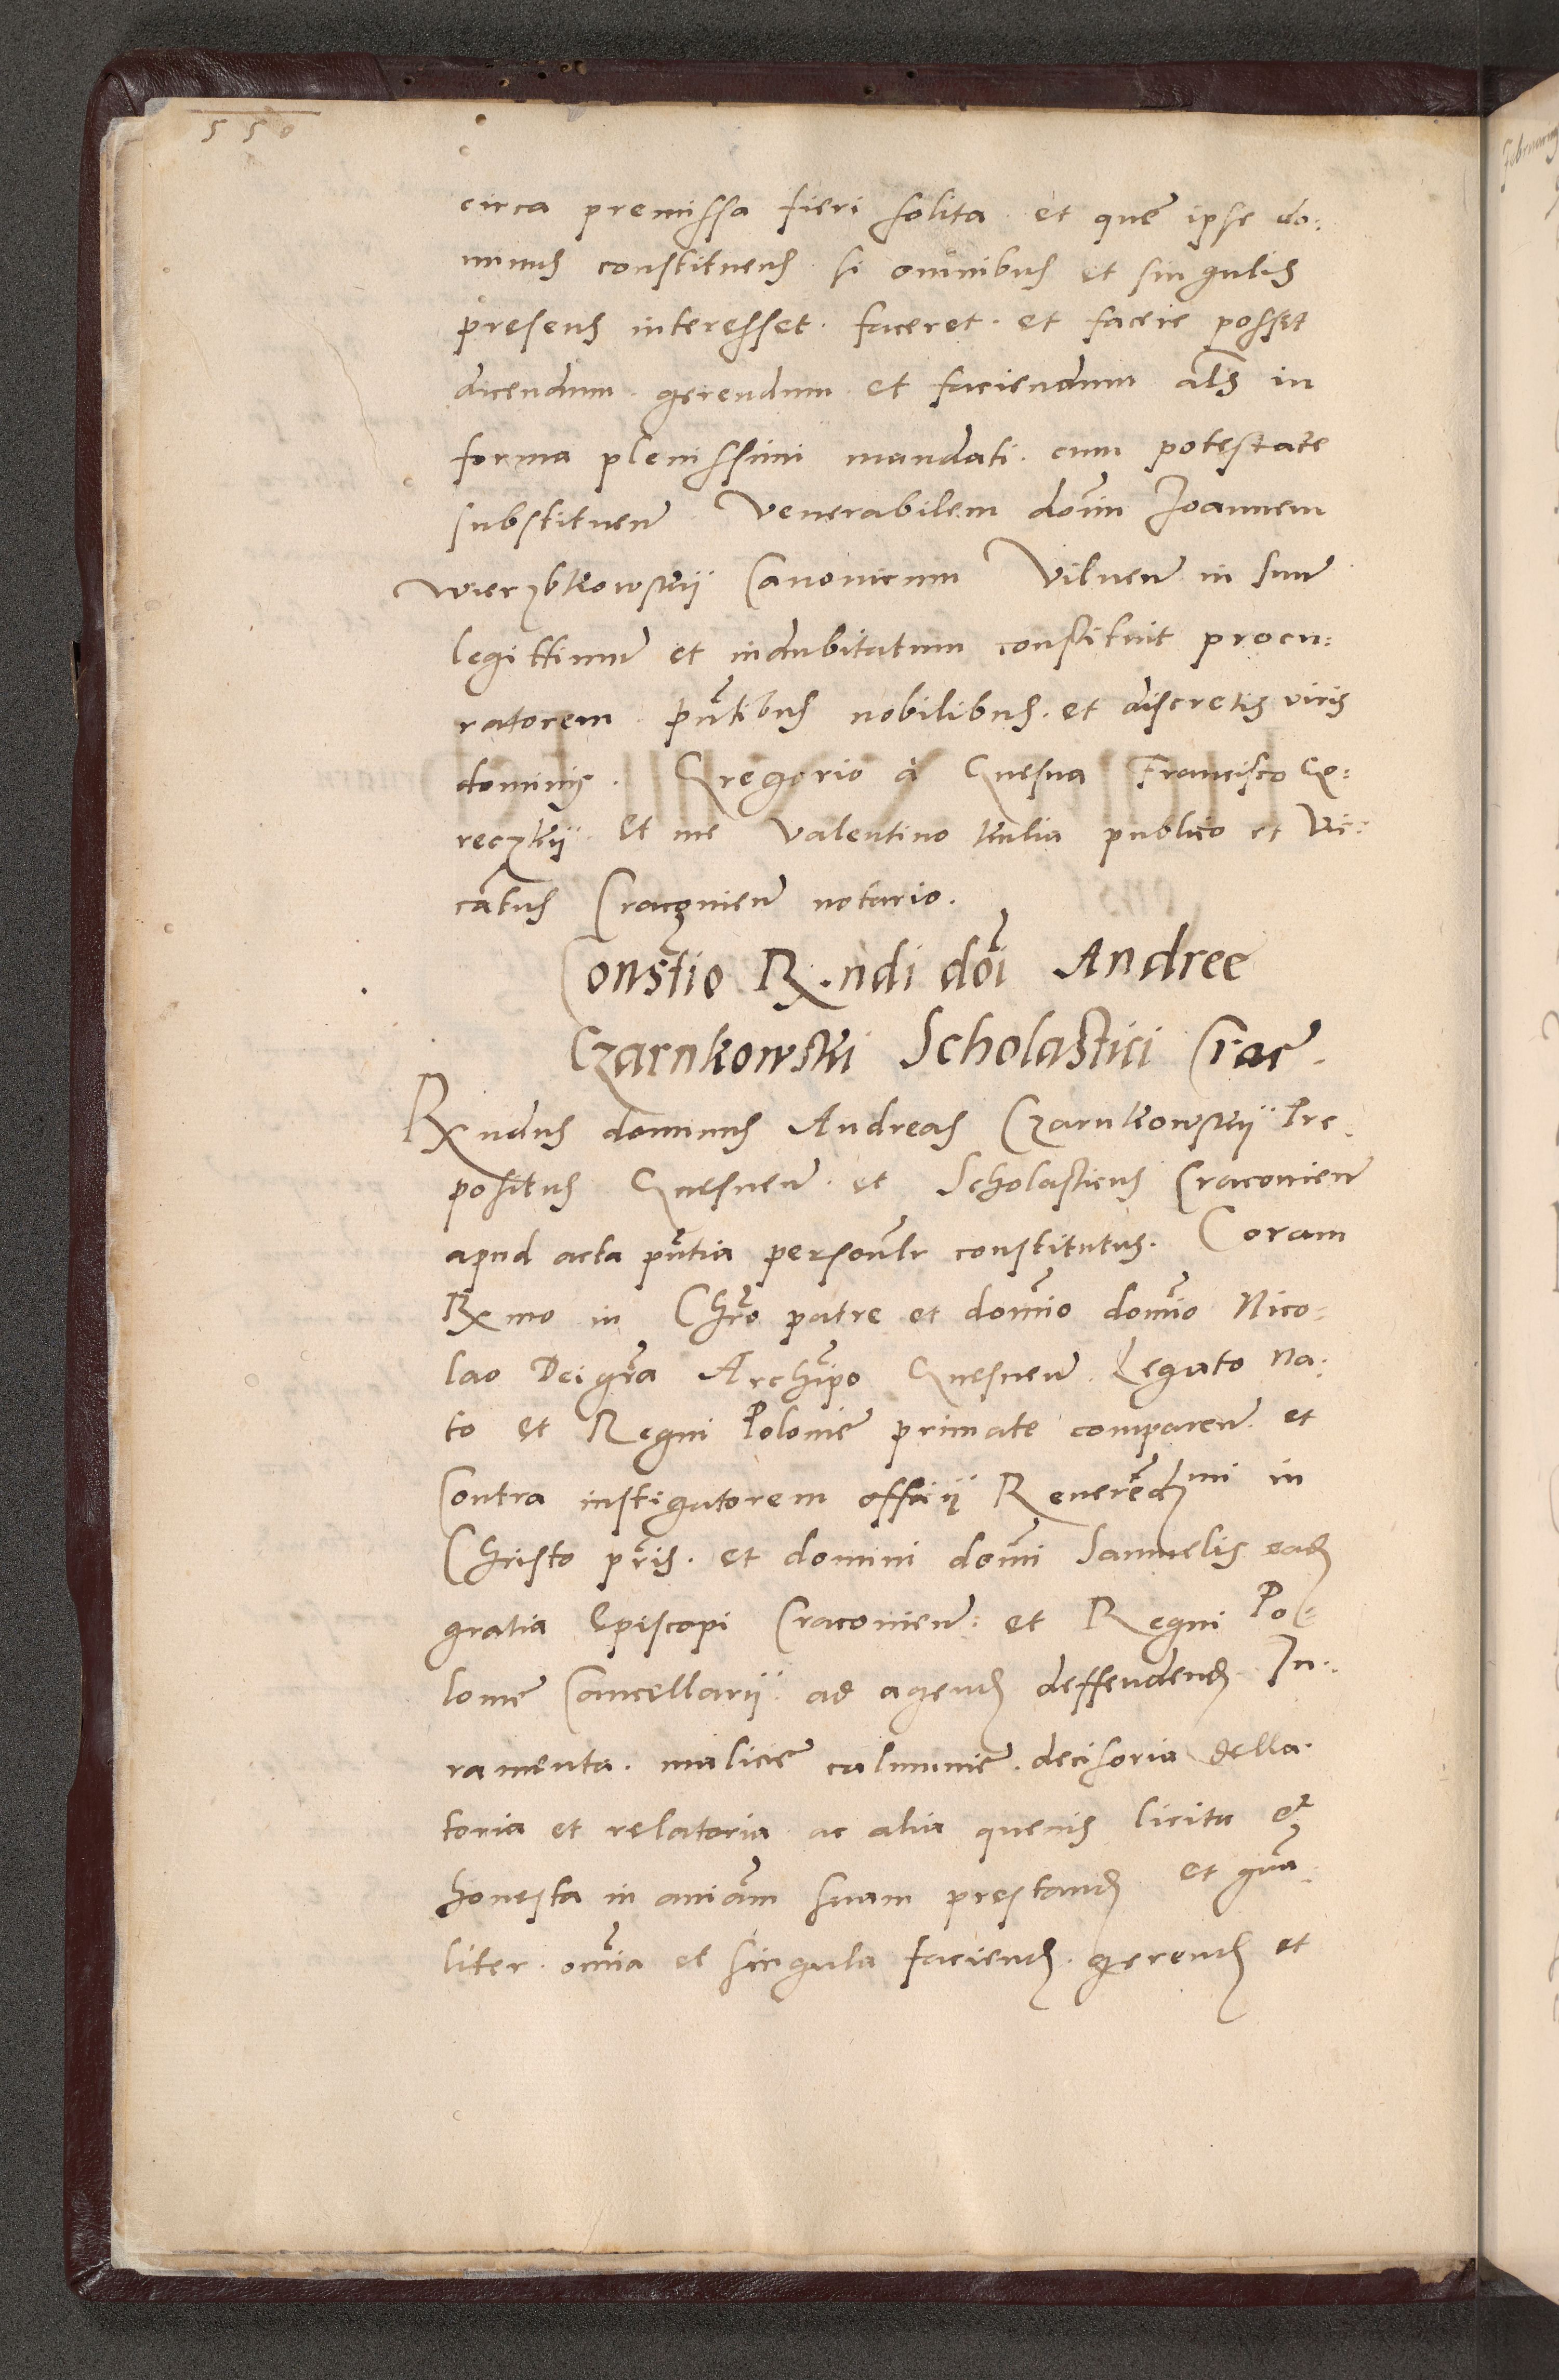 550
circa premissa fieri solita et que ipse do:
minus constituens si omnibus et singulis
presens interesset. faceret. et facere posset
dicendum. gerendum et faciendum als in
forma plenissimi mandati. cum potestate
substituen Venerabilem doim Joannem
Wierzbkowskij Canonicum Vilnen in suu
legittimu et indubitatum constituit procu:
ratorem pntibus nobilibus. et discretis viris
dominis. Gregorio a Gnesna Francisco Go:
reczkij. Et me Valentino Kulia publico et Ac:
catus Cracouien notario.
Constio R.ndi doi Andree
Czarnkowski Scholastici Crac.
Rndus dominus Andreas Czarnkowskij Pre
positus Gnesnen. et Scholasticus Cracouien
apud acta pntia personlr constitutus. Coram
Rmo in Chro patre et domio domio Nico:
lao Dei gra Archiepo Gnesnen Legato na:
to et Regni Polonie primate comparen. et
Contra instigatorem officij Reverendmi in
Christo pris. et domini domi Samuelis ead
gratia Episcopi Cracouien: et Regni Po:
lonie Cancellarij. ad agend deffendend Ju:
ramenta. malicie calumnie. decisoria della:
toria et relatoria ac alia quevis licita et
honesta in aniam suam prestand et gna:
liter. omia et singula faciend. gerend et
Februarij